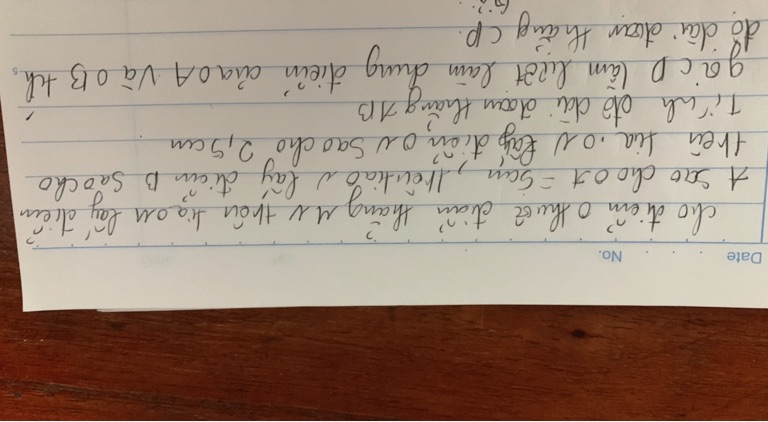 Date No.
cho điểm O thuộc đoạn thẳng MN trên tia OM lấy điểm
A sao cho OA = 5cm, trên tia O N lấy điểm B sao cho
trên tia ON lấy điểm ON sao cho 2,5cm
Tính độ dài đoạn thẳng AB
gọi C D lần lượt làm trung điểm của OA và OB
độ dài đoạn thẳng CD.